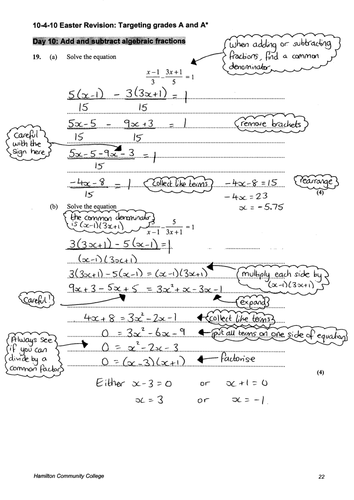 10-4-10 Easter Revision: Targeting grades A and A*
Day 10: Add and subtract algebraic fractions
When adding or subtracting fractions, find a common denominator.
19. (a) Solve the equation
(x-1)/3 - (3x+1)/5 = 1
5(x-1)/15 - 3(3x+1)/15 = 1
(5x-5)/15 - (9x+3)/15 = 1
remove brackets
Careful with the sign here
(5x-5-9x-3)/15 = 1
(-4x-8)/15 = 1
collect like terms
-4x-8=15
-4x=23
x=-5.75
rearrange
(4)
(b) Solve the equation
the common denominator is (x-1)(3x+1)
3/(x-1) - 5/(3x+1) = 1
(3(3x+1) - 5(x-1))/((x-1)(3x+1)) = 1
3(3x+1) - 5(x-1) = (x-1)(3x+1)
multiply each side by (x-1)(3x+1)
9x+3-5x+5 = 3x²+x-3x-1
Careful!
expand
4x+8 = 3x²-2x-1
collect like terms
0 = 3x²-6x-9
put all terms on one side of equation
Always see if you can divide by a common factor
0 = x²-2x-3
0 = (x-3)(x+1)
factorise
(4)
Either x-3=0 or x+1=0
x=3 or x=-1.
Hamilton Community College
22